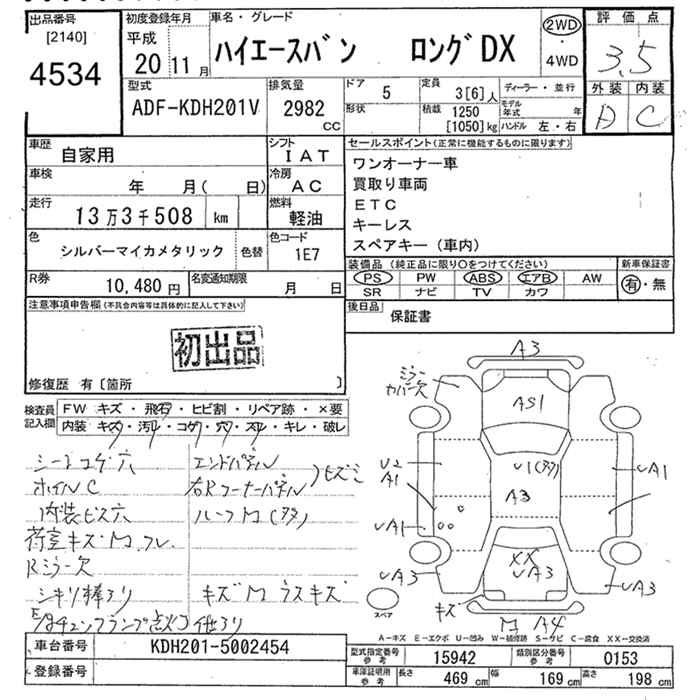 出品番号
[2140]
4534
初度登録年月
平成
20 11 月
車名・グレード
ハイエースバン ロングDX
2WD
・
4WD
評価点
3.5
外装 内装
A C
型式
ADF-KDH201V
排気量
2982
CC
ドア 5
形状
定員 3[6]人
積載 1250
[1050]kg
ディーラー・並行
モデル年式 年
ハンドル 左・右
車歴
自家用
シフト
IAT
車検
年 月( 日)
冷房
AC
走行
13万3千508 km
燃料
軽油
色
シルバーマイカメタリック
色替
色コード
1E7
R券
10,480 円
名変通知期限
月 日
セールスポイント(正常に機能するものに限ります)
ワンオーナー車
買取り車両
ETC
キーレス
スペアキー(車内)
装備品 (純正品に限り○をつけてください)
PS PW ABS エアB AW
SR ナビ TV カワ
新車保証書
有・無
後日品
保証書
注意事項申告欄(不具合内容等は具体的に記入して下さい)
初出品
修復歴 有〔箇所 〕
検査員
記入欄
FW キズ・飛石・ヒビ割・リペア跡・×要
内装 キズ・汚レ・コゲ・穴・スレ・キレ・破レ
シートコゲ穴
ホイルC
内装ビス穴
荷室キズM フレ
Rミラー欠
シキリ棒有り
エンドパネル
右Rコーナーパネル
)ヒズミ
ルーフM(多)
キズM ウスキズ
他有り
A3
ミラー
カバー欠
AS1
U2
A1
U1(多)
A3
UA1
UA1
XX
UA3
UA3
UA3
キズ
M A4
スペア
A-キズ E-エクボ U-凹み W-補修跡 S-サビ C-腐食 XX-交換済
車台番号
KDH201-5002454
登録番号
型式指定番号
参考
15942
類別区分番号
参考
0153
車検証明用
参考
長さ 469 cm
幅 169 cm
高さ 198 cm